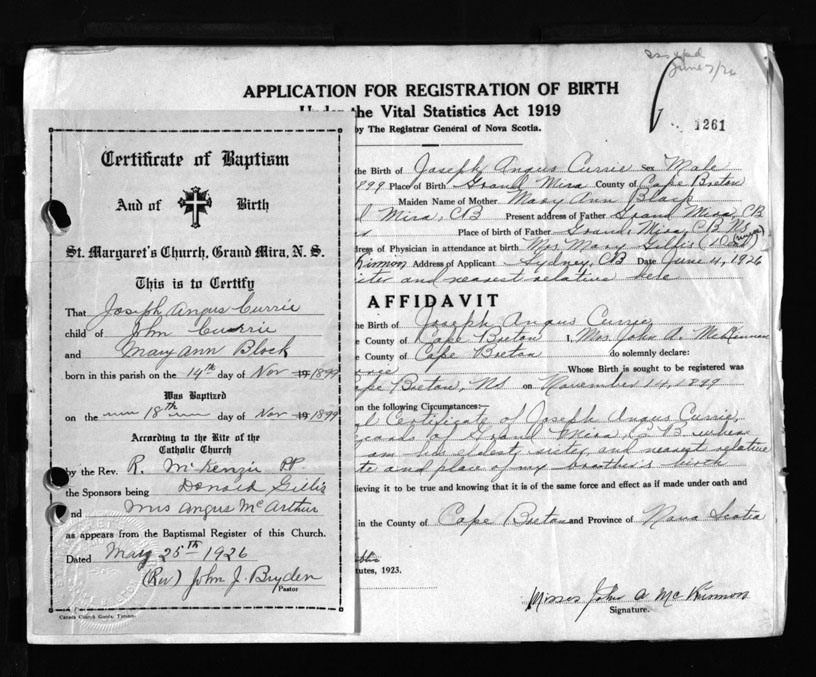 issued
June 7/26
APPLICATION FOR REGISTRATION OF BIRTH
Under the Vital Statistics Act 1919
by The Registrar General of Nova Scotia.
1261
the Birth of Joseph Angus Currie Sex Male
1899 Place of Birth Grand Mira County of Cape Breton
Maiden Name of Mother Mary Ann
Mira, CB Present address of Father Grand Mira, CB
Place of birth of Father Grand Mira, CB NS
dress of Physician in attendance at birth Mrs Mary Gillis (Dead) (nurse)
Kinnon Address of Applicant Sydney, CB Date June 4, 1926
ister and nearest relative here
AFFIDAVIT
the Birth of Joseph Angus Currie
e County of Cape Breton I, Mrs. John A. McKinnon
e County of Cape Breton do solemnly declare:
Whose Birth is sought to be registered was
ape Breton, NS on November 14, 1899
on the following Circumstances:—
al Certificate of Joseph Angus Currie,
of Grand Mira, C.B. when
am his eldest sister and nearest relative
te and place of my brother's birth
lieving it to be true and knowing that it is of the same force and effect as if made under oath and
in the County of Cape Breton and Province of Nova Scotia
tutes, 1923.
Misses John A McKinnon
Signature.
Certificate of Baptism
And of Birth
St. Margaret's Church, Grand Mira, N. S.
This is to Certify
That Joseph Angus Currie
child of John Currie
and Mary Ann Block
born in this parish on the 14th day of Nov 19 1899
Was Baptized
on the 18th day of Nov 19 1899
According to the Rite of the
Catholic Church
by the Rev. R. McKenzie PP.
the Sponsors being Donald Gillis
and Mrs Angus McArthur
as appears from the Baptismal Register of this Church.
Dated May 25th 1926
(Rev) John J. Bryden
Pastor
Canada Church Goods, Toronto.